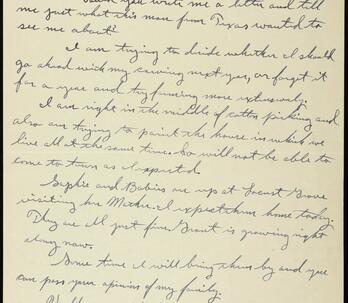 you write me a letter and tell
me just what this man from Texas wanted to
see me about?
I am trying to decide whether I should
go ahead with my carving next year, or forget it
for a year and try farming more extensively.
I am right in the middle of cotton picking and
also am trying to paint the house in which we
live all at the same time. So will not be able to
come to town as I expected.
Sophie and Babies are up at Locust Grove
visiting her Mother. I expect them home today.
They are all just fine, Grant is growing right
along now.
Some time I will bring them by and you
can pass your opinion of my family.